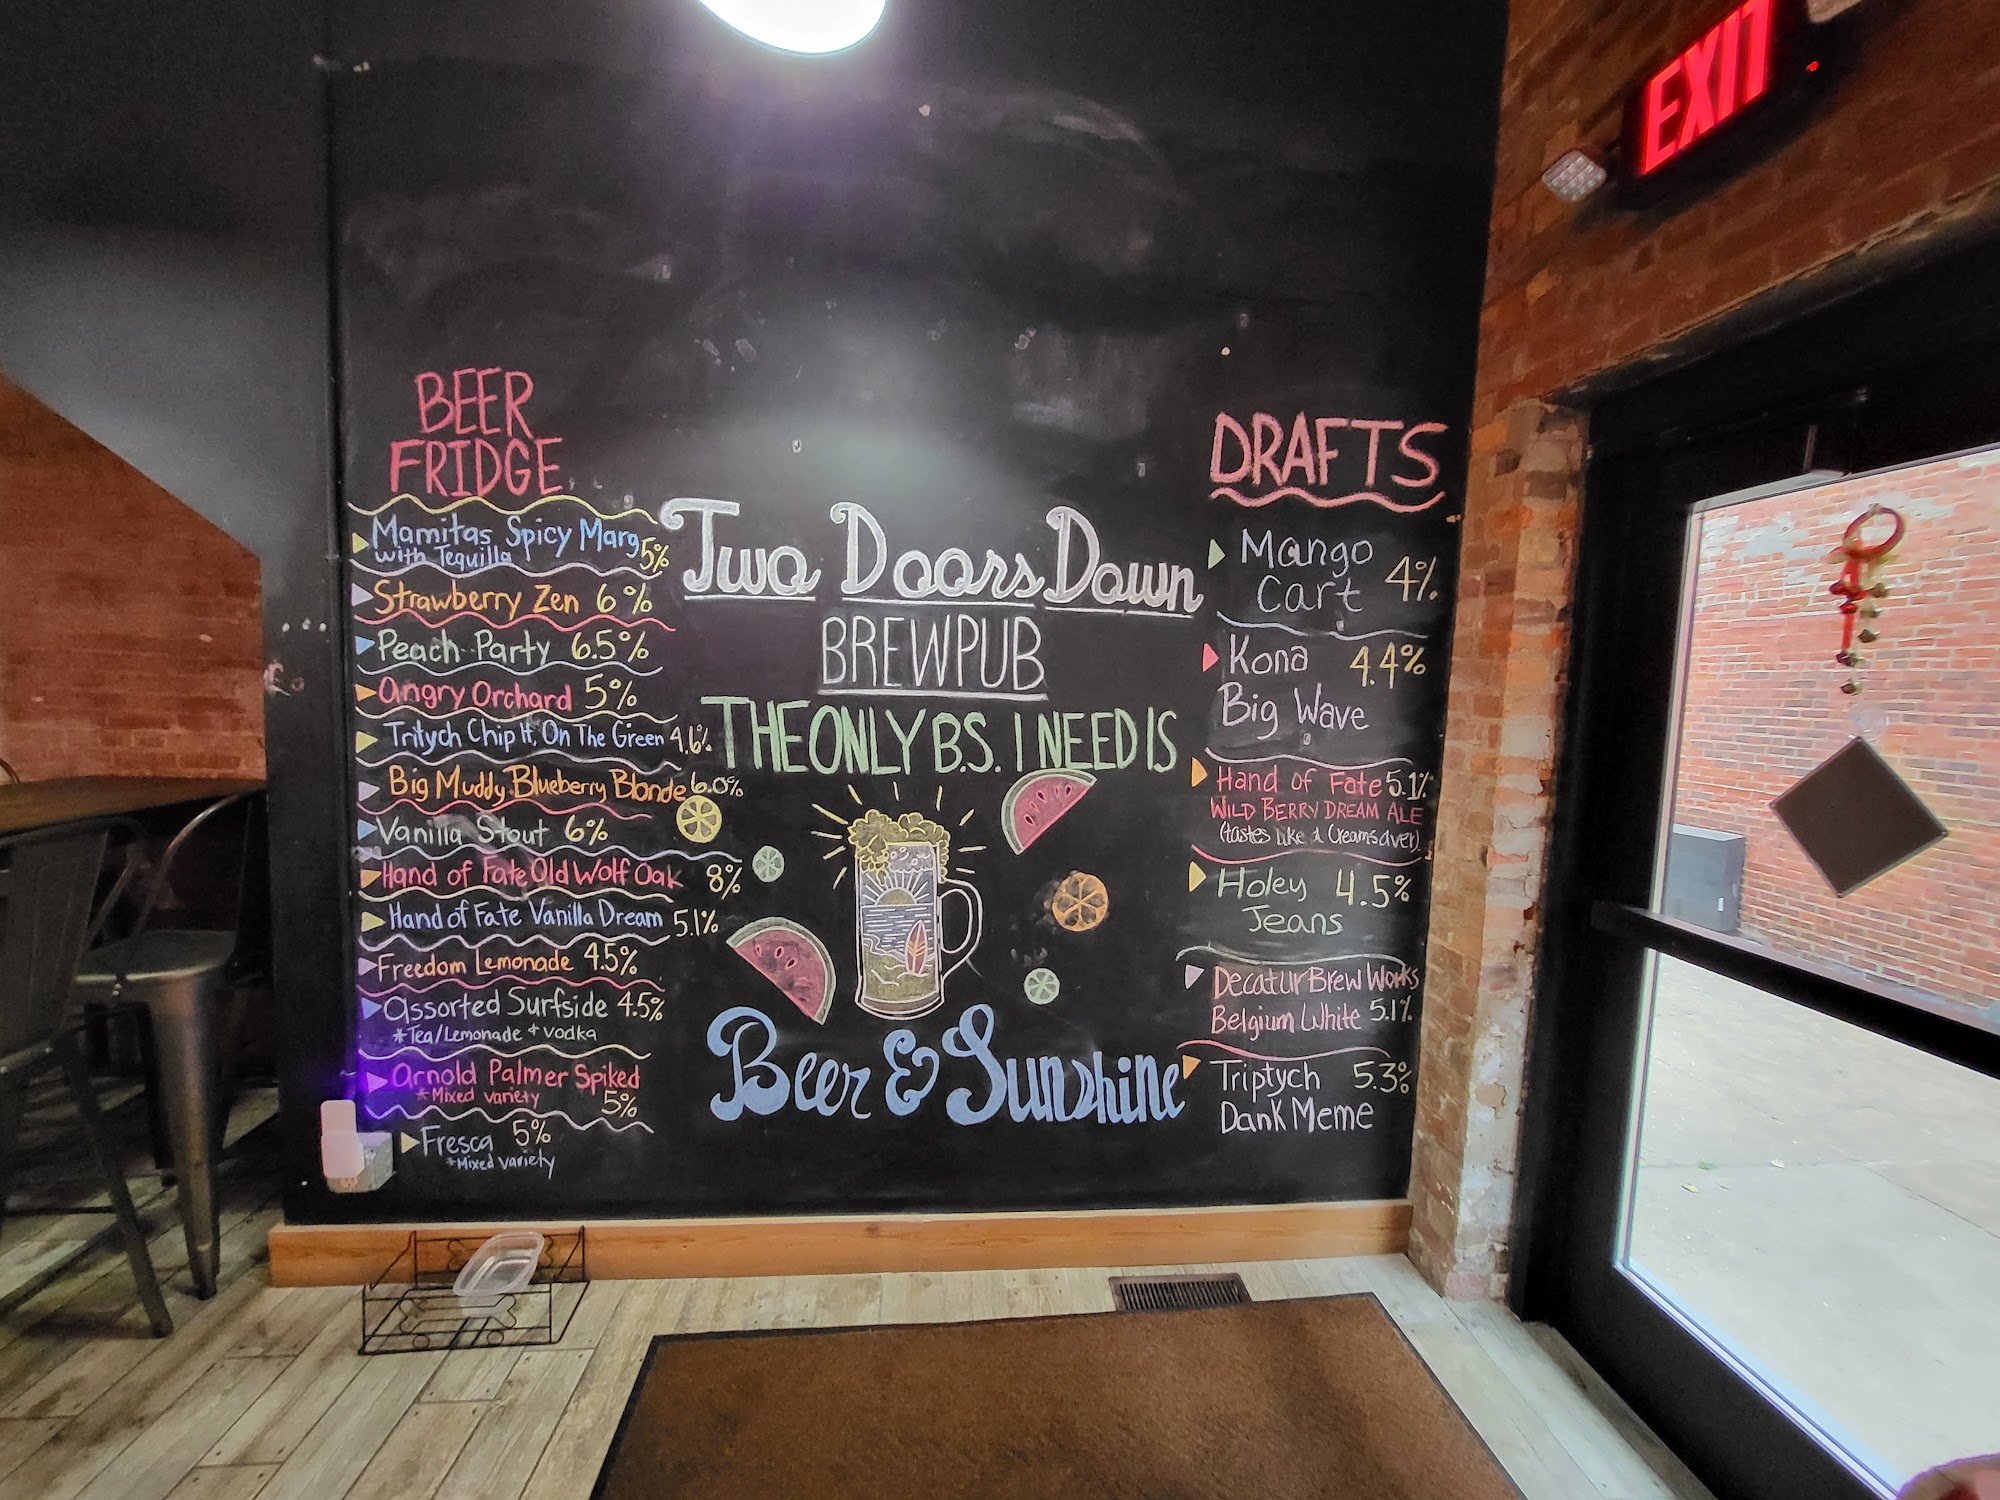 EXIT
BEER
FRIDGE
Mamitas Spicy Marg 5%
with Tequilla
Strawberry Zen 6%
Peach Party 6.5%
Angry Orchard 5%
Tritych Chip It, On The Green 4.6%
Big Muddy Blueberry Blonde 6.0%
Vanilla Stout 6%
Hand of Fate Old Wolf Oak 8%
Hand of Fate Vanilla Dream 5.1%
Freedom Lemonade 4.5%
Assorted Surfside 4.5%
*Tea/Lemonade + vodka
Arnold Palmer Spiked
*Mixed variety 5%
Fresca 5%
*Mixed variety
Two Doors Down
BREWPUB
THE ONLY B.S. I NEED IS
Beer & Sunshine
DRAFTS
Mango
Cart 4%
Kona 4.4%
Big Wave
Hand of Fate 5.1%
WILD BERRY DREAM ALE
(tastes like a Creamsaver)
Holey 4.5%
Jeans
Decatur Brew Works
Belgium White 5.1%
Triptych 5.3%
Dank Meme